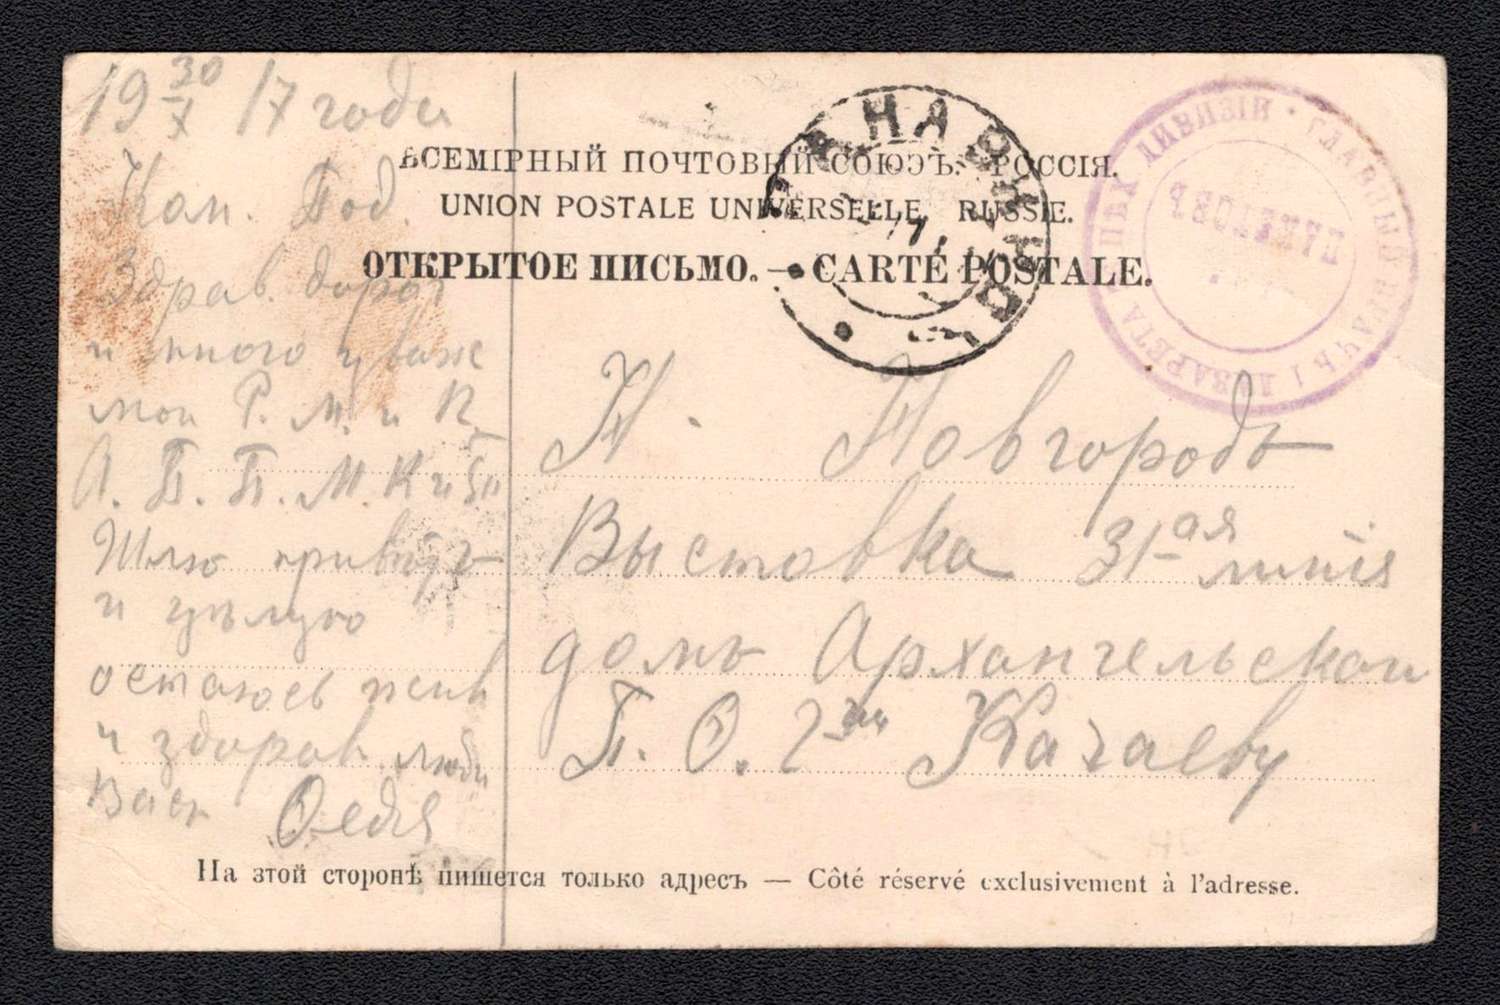 19 30/X 17 годи
Кам. Под.
Здрав. дорог
и много уваж
мои Р. М. и К.
А. Б. Б. М. К и
Шлю привѣтъ
и цѣлую
остаюсь
и здоров. люби
Васъ Ѳедя
ВСЕМІРНЫЙ ПОЧТОВЫЙ СОЮЗЪ. РОССІЯ.
UNION POSTALE UNIVERSELLE. RUSSIE.
ОТКРЫТОЕ ПИСЬМО. — CARTE POSTALE.
ГЛАВНЫЙ ВРАЧЪ 1 ЛАЗАРЕТА ДИВИЗІИ
Н. Новгородъ
Выставка 31-ая линія
домъ Архангельской
Г. О. Качаеву
На этой сторонѣ пишется только адресъ — Côté réservé exclusivement à l'adresse.